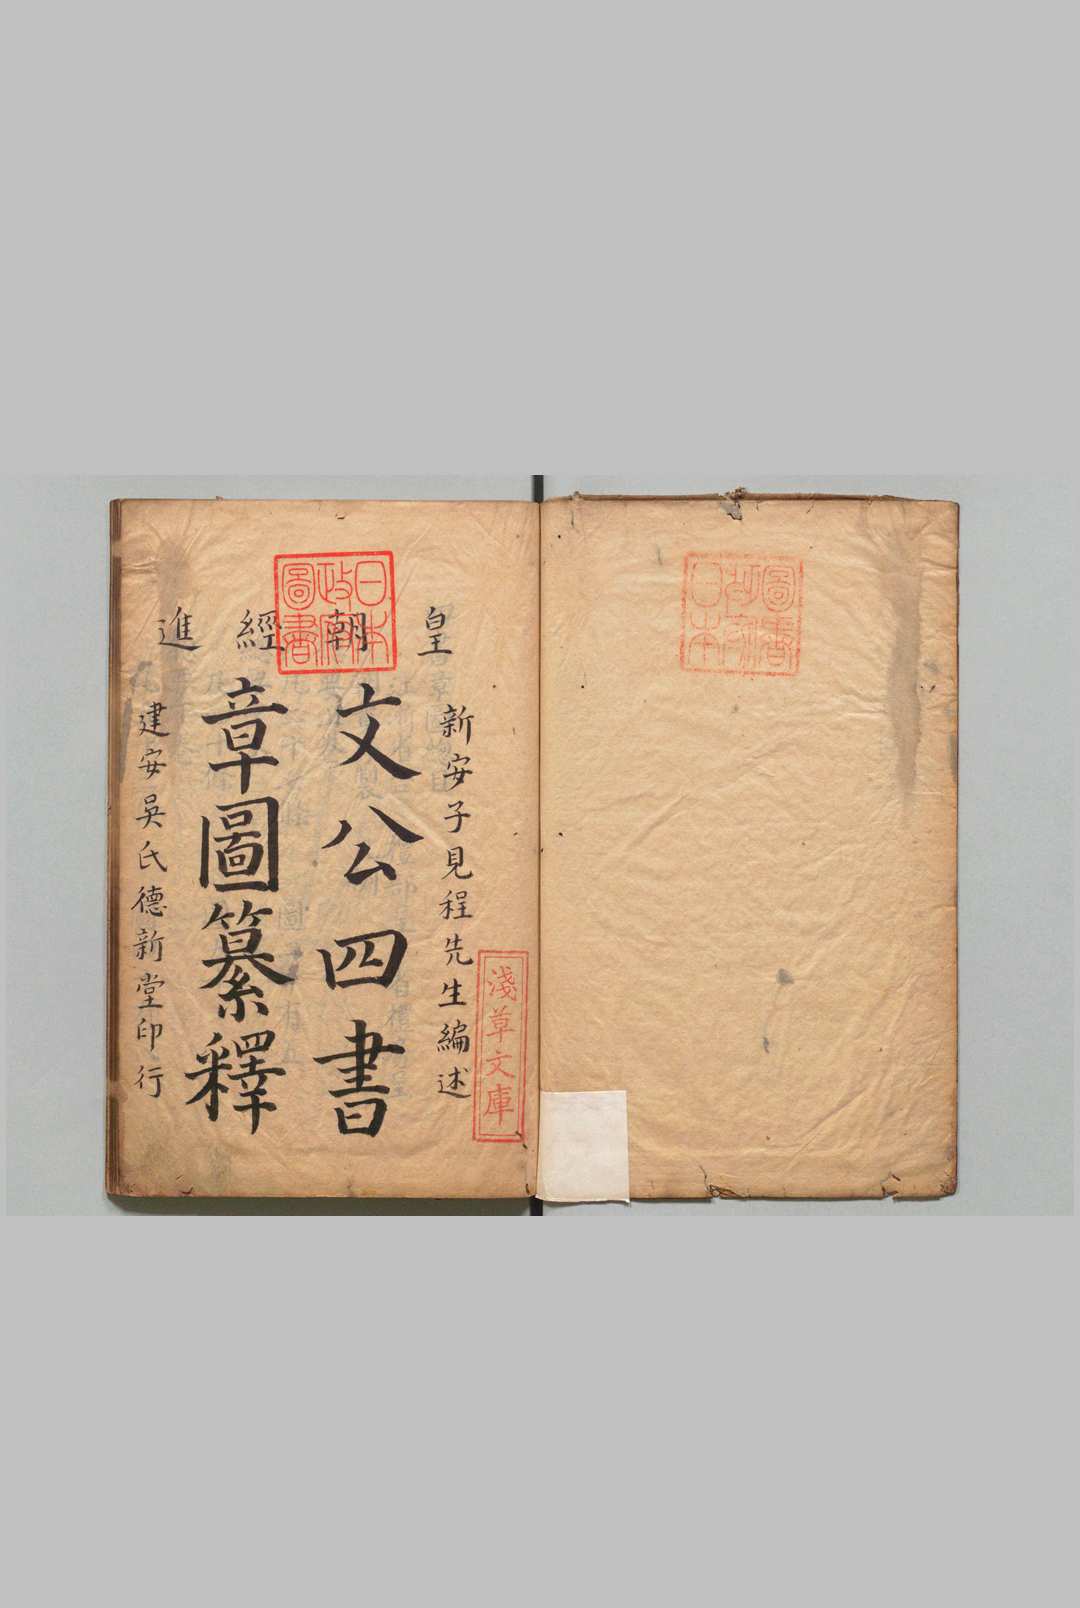 皇朝經進
新安子見程先生編述
文公四書
章圖纂釋
建安吳氏德新堂印行
日本
政府
圖書
淺草文庫